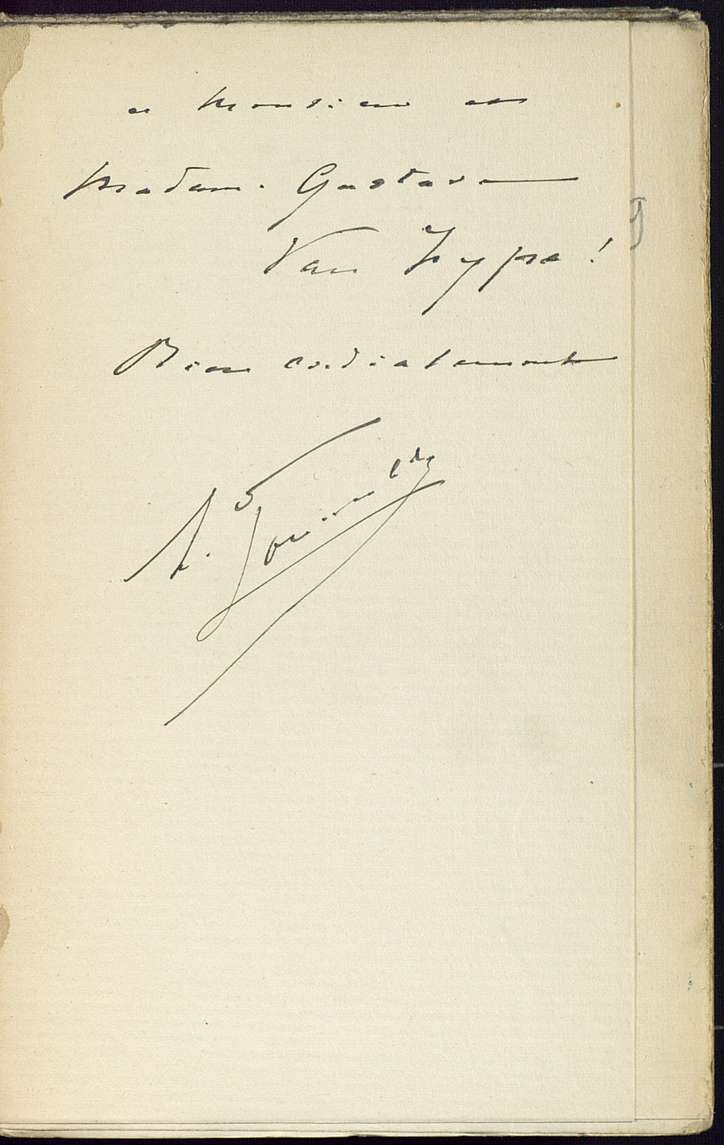 a Monsieur et
Madame Gustave
Van Zype !
Bien cordialement
A.